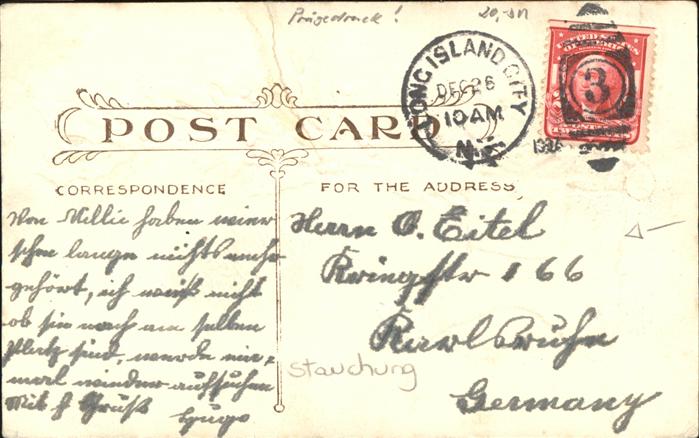 Prägedruck! 20,-DM
LONG ISLAND CITY
DEC 26
10 AM
N.Y.
3
POST CARD
CORRESPONDENCE
FOR THE ADDRESS
Von Willie haben wir
schon lange nichts mehr
gehört, ich weiß nicht
ob sie noch am selben
Platz sind, werde sie
mal wieder aufsuchen
Mit Gruß
Hugo
Herrn O. Eitel
Ringstr 166
Karlsruhe
Germany
Stauchung